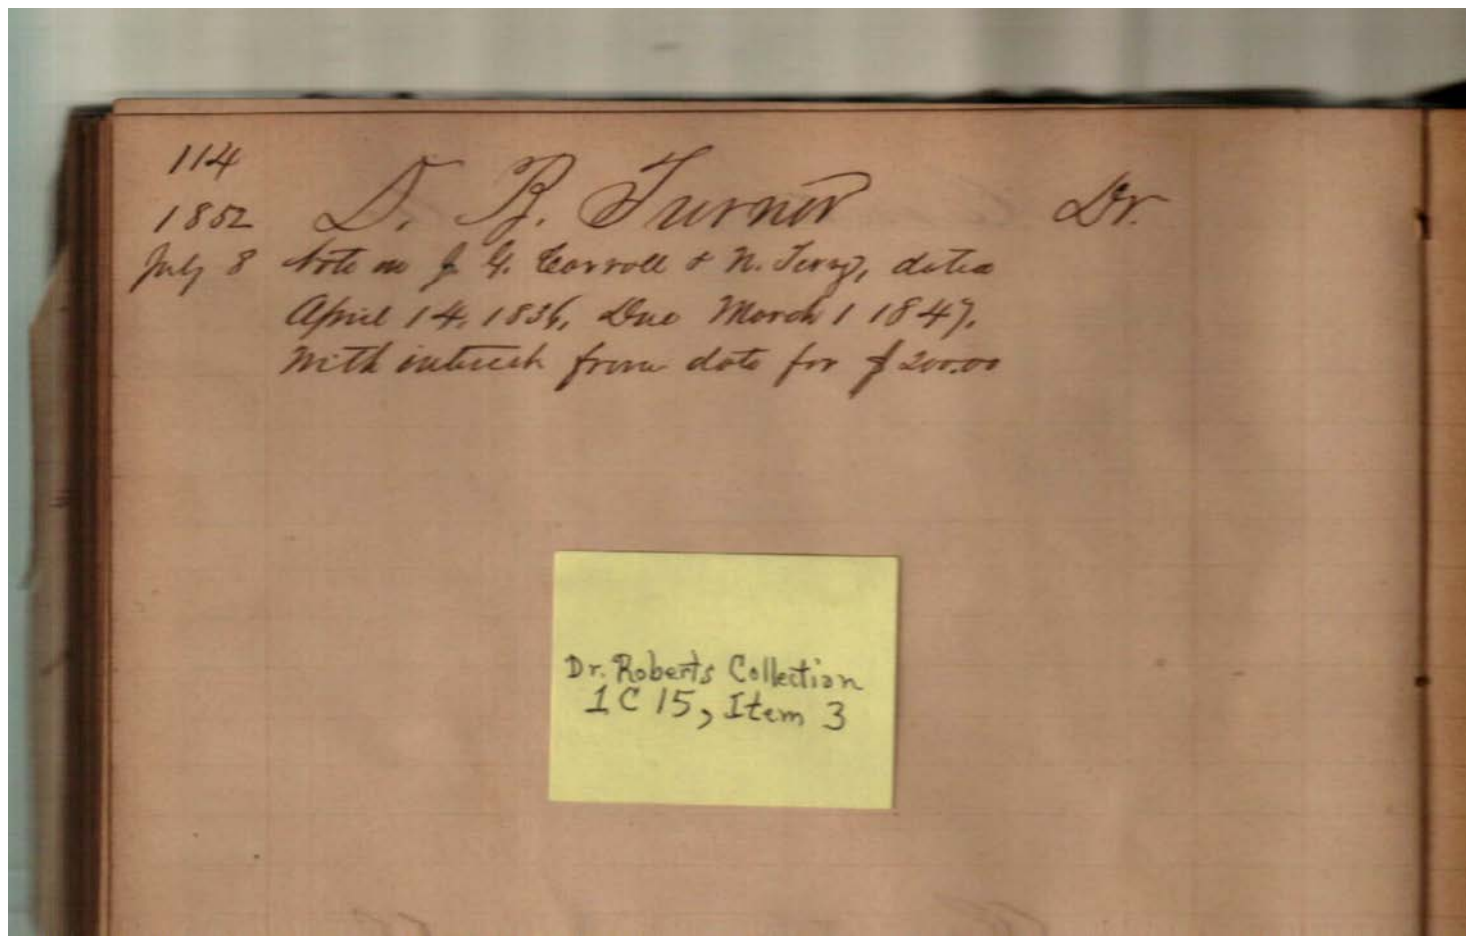 114
1852 D. B. Turner Dr.
July 8 Note on J. G. Carroll & N. Terry, dated
April 14, 1836, Due March 1 1847.
With interest from date for $200.00
Dr. Roberts Collection
1C15, Item 3